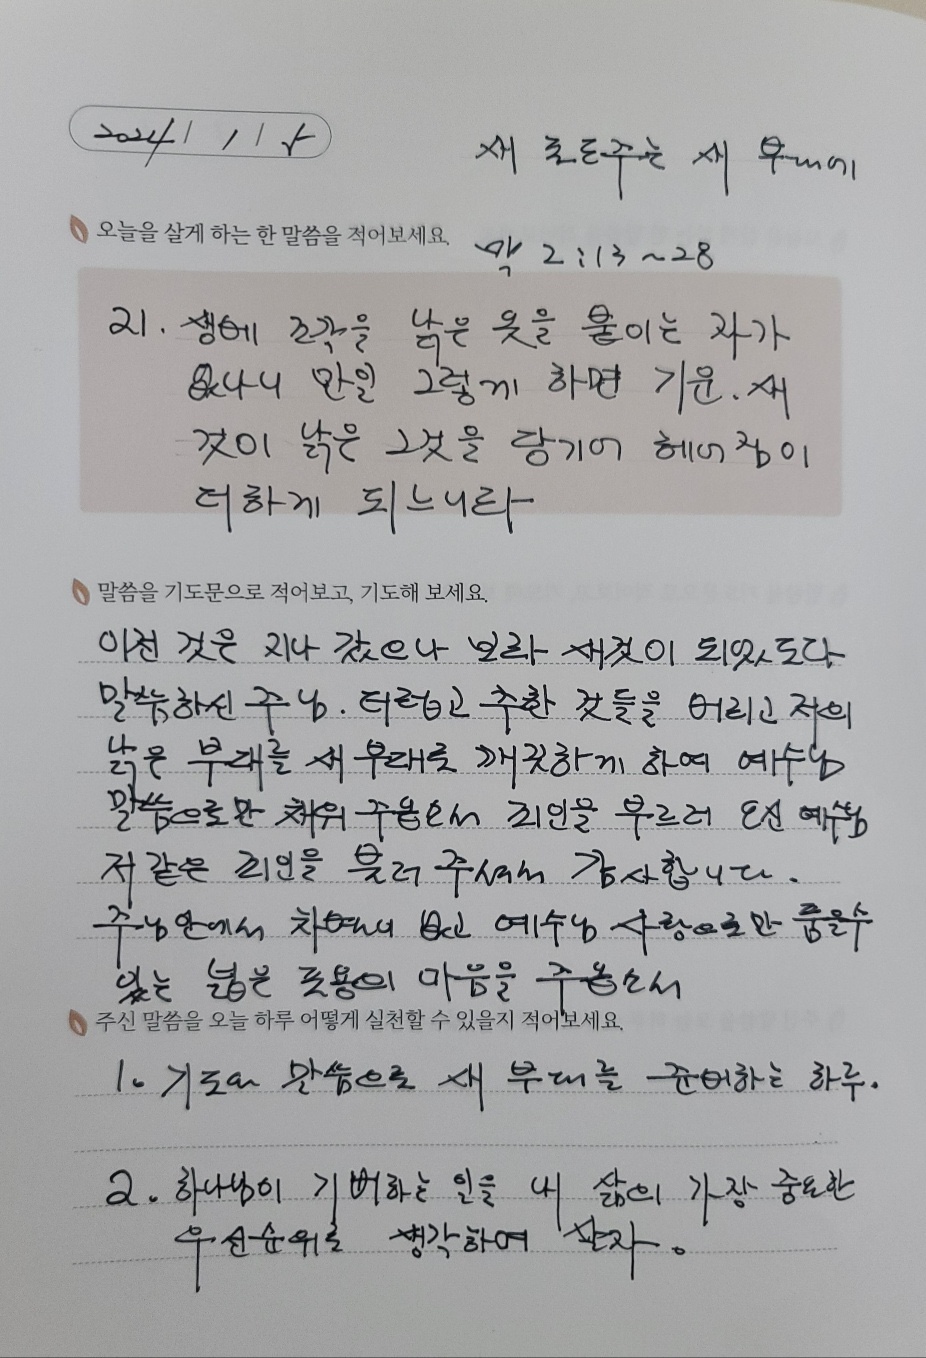 2024/1/15
새 포도주는 새 부대에
오늘을 살게 하는 한 말씀을 적어보세요.
막 2:13~28
21. 생베 조각을 낡은 옷을 붙이는 자가
없나니 만일 그렇게 하면 기운. 새
것이 낡은 그것을 당기어 헤어짐이
더하게 되느니라
말씀을 기도문으로 적어보고, 기도해 보세요.
이전 것은 지나 갔으나 보라 새것이 되었도다
말씀하신 주님. 더럽고 추한 것들을 버리고 저의
낡은 부대를 새 부대로 깨끗하게 하여 예수님
말씀으로만 채워 주옵소서 죄인을 부르러 오신 예수님
저 같은 죄인을 불러 주셔서 감사합니다.
주님안에서 차여나 없고 예수님 사랑으로만 품을수
있는 넓은 포용의 마음을 주옵소서
주신 말씀을 오늘 하루 어떻게 실천할 수 있을지 적어보세요.
1. 기도와 말씀으로 새 부대를 준비하는 하루.
2. 하나님이 기뻐하는 일을 내 삶의 가장 중요한
우선순위로 생각하여 살자.